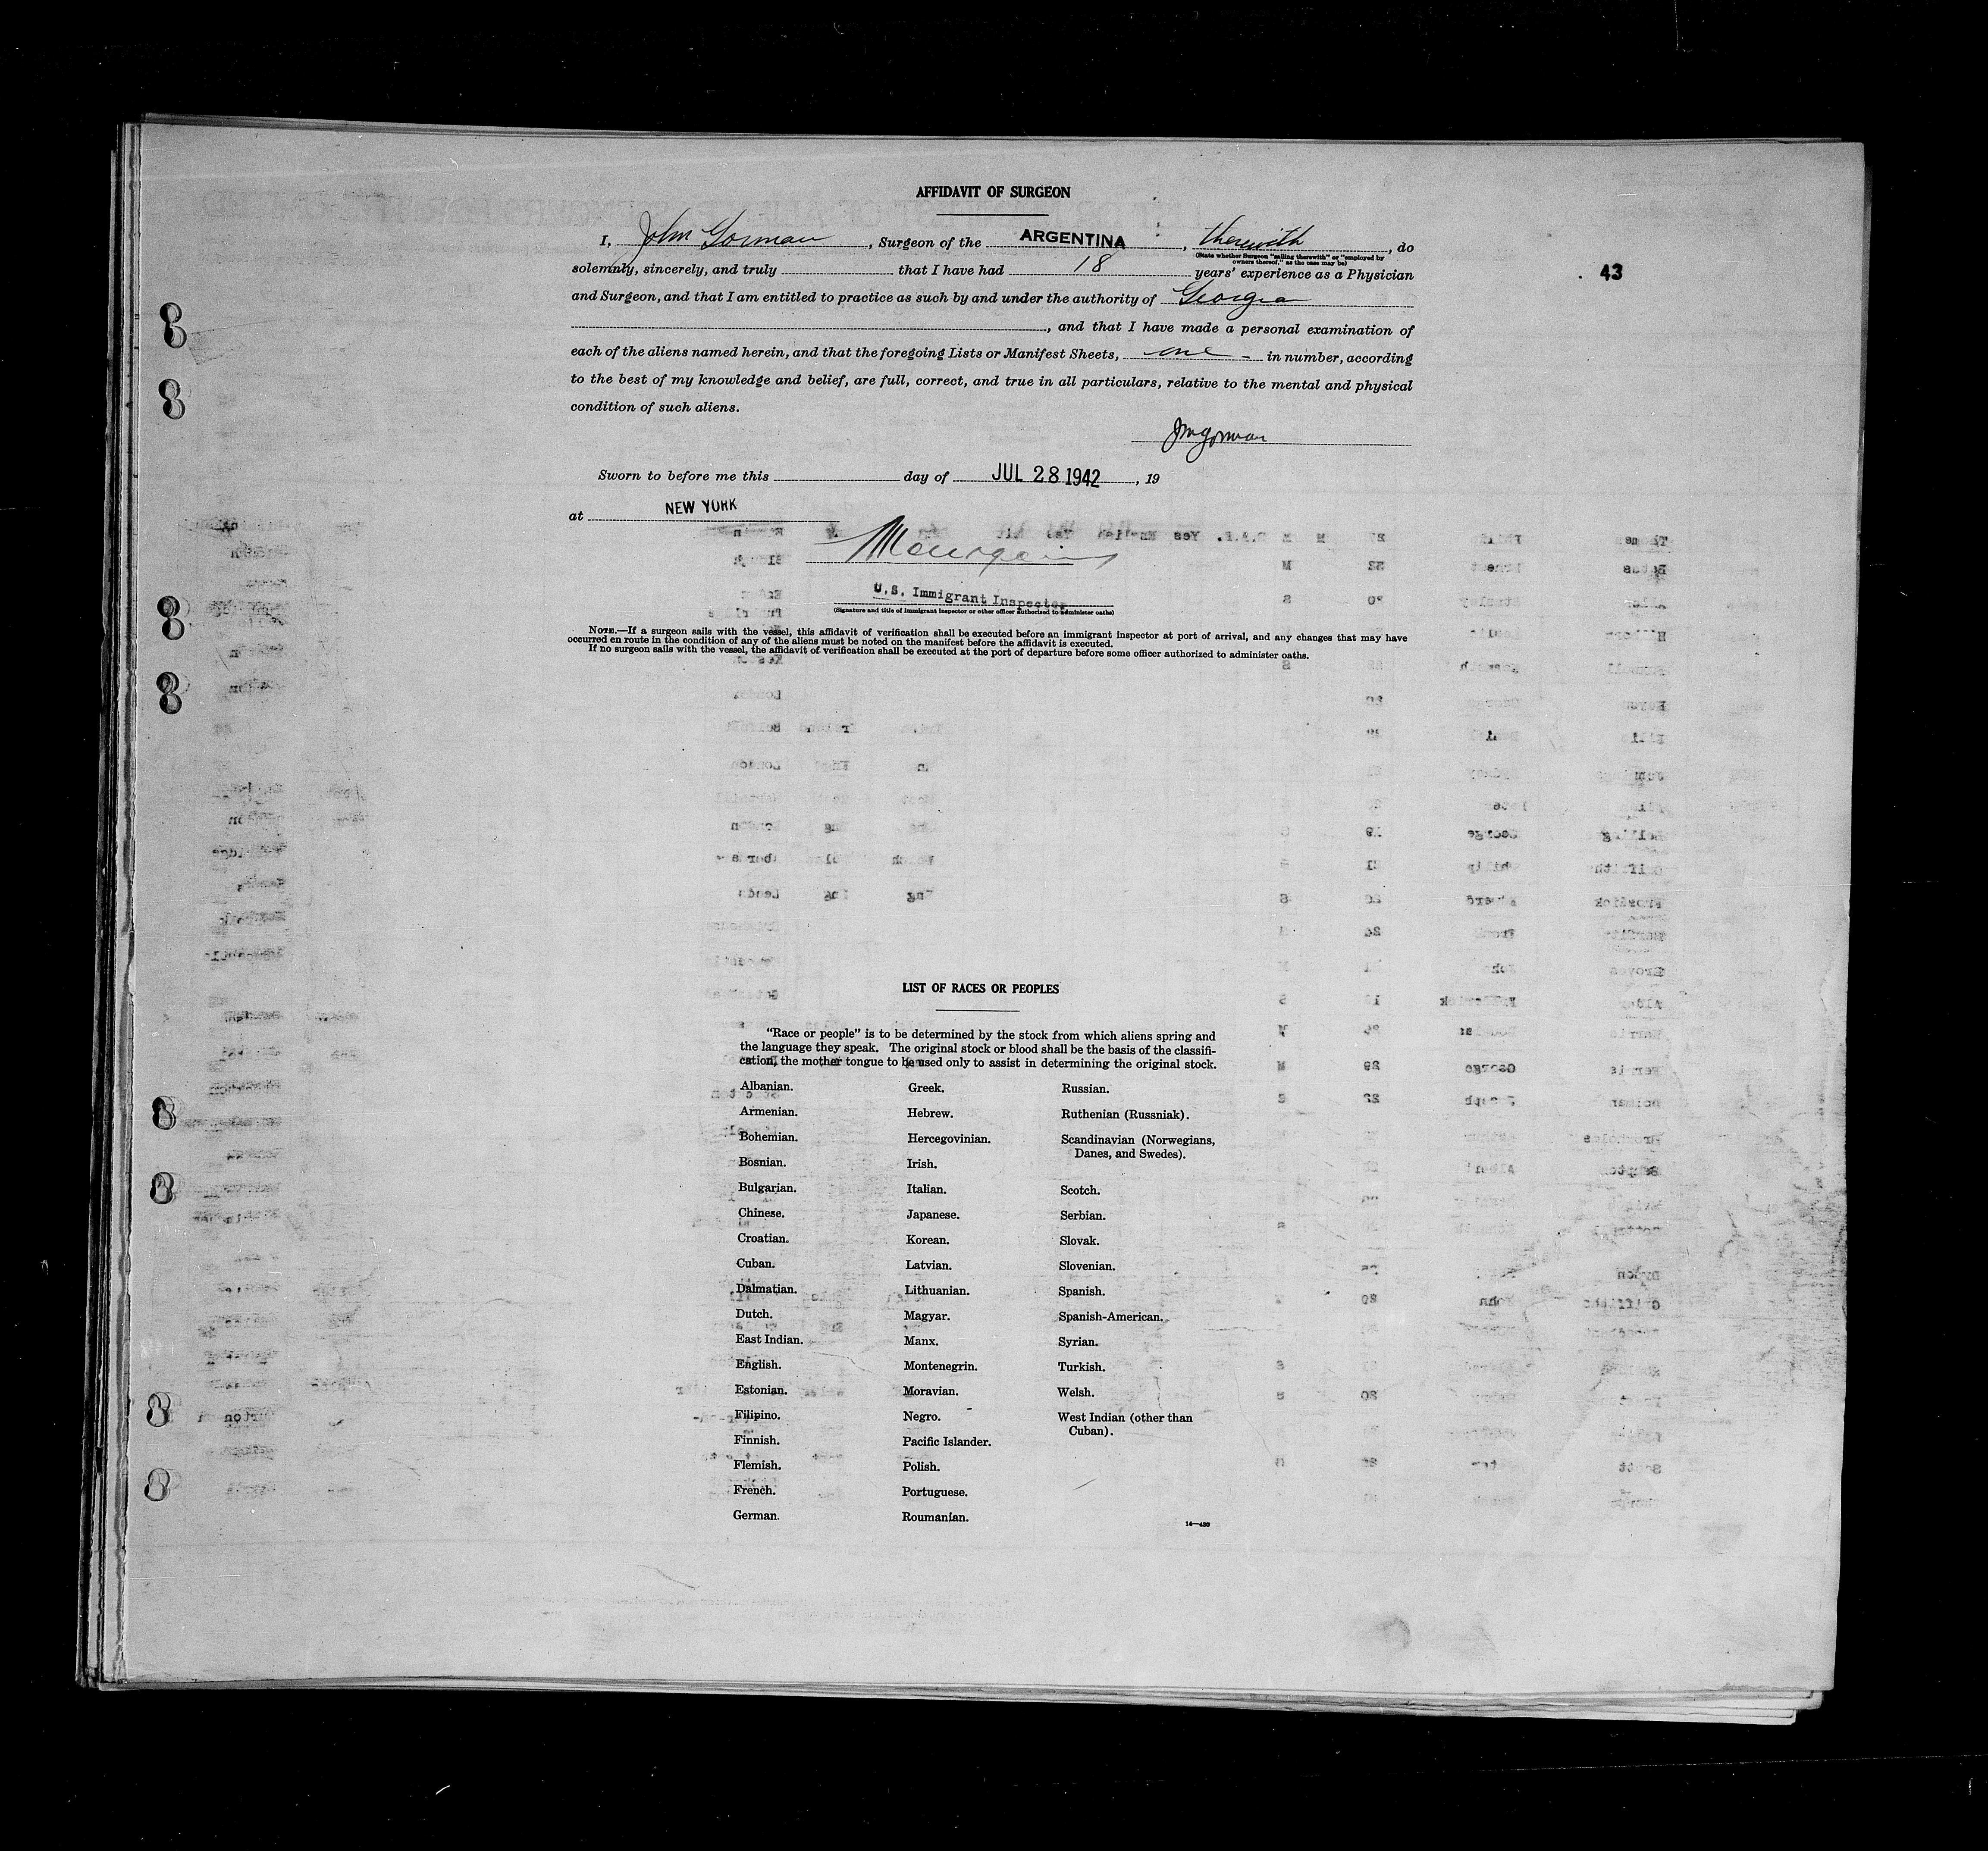 AFFIDAVIT OF SURGEON
I, John Gorman, Surgeon of the ARGENTINA, therewith, do
(State whether Surgeon "sailing therewith" or "employed by
owners thereof," as the case may be)
solemnly, sincerely, and truly that I have had 18 years' experience as a Physician
43
and Surgeon, and that I am entitled to practice as such by and under the authority of Georgia
, and that I have made a personal examination of
each of the aliens named herein, and that the foregoing Lists or Manifest Sheets, one - in number, according
to the best of my knowledge and belief, are full, correct, and true in all particulars, relative to the mental and physical
condition of such aliens.
Sworn to before me this day of JUL 28 1942, 19
at NEW YORK
U.S. Immigrant Inspector
(Signature and title of immigrant inspector or other officer authorized to administer oaths)
NOTE.—If a surgeon sails with the vessel, this affidavit of verification shall be executed before an immigrant inspector at port of arrival, and any changes that may have
occurred en route in the condition of any of the aliens must be noted on the manifest before the affidavit is executed.
If no surgeon sails with the vessel, the affidavit of verification shall be executed at the port of departure before some officer authorized to administer oaths.
LIST OF RACES OR PEOPLES
"Race or people" is to be determined by the stock from which aliens spring and
the language they speak. The original stock or blood shall be the basis of the classifi-
cation, the mother tongue to be used only to assist in determining the original stock.
Albanian.
Armenian.
Bohemian.
Bosnian.
Bulgarian.
Chinese.
Croatian.
Cuban.
Dalmatian.
Dutch.
East Indian.
English.
Estonian.
Filipino.
Finnish.
Flemish.
French.
German.
Greek.
Hebrew.
Hercegovinian.
Irish.
Italian.
Japanese.
Korean.
Latvian.
Lithuanian.
Magyar.
Manx.
Montenegrin.
Moravian.
Negro.
Pacific Islander.
Polish.
Portuguese.
Roumanian.
Russian.
Ruthenian (Russniak).
Scandinavian (Norwegians,
Danes, and Swedes).
Scotch.
Serbian.
Slovak.
Slovenian.
Spanish.
Spanish-American.
Syrian.
Turkish.
Welsh.
West Indian (other than
Cuban).
14—430